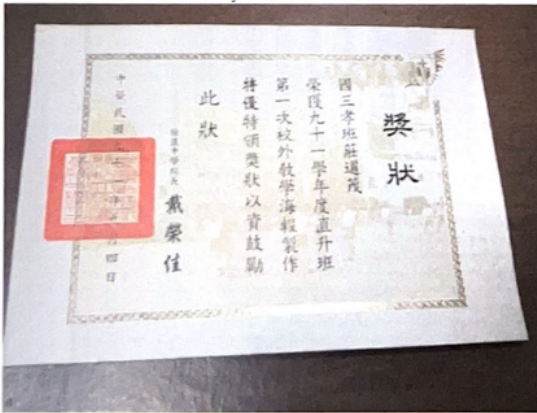 獎狀
國三孝班莊適茂
榮獲九十一學年度直升班
第一次校外教學海報製作
特優特頒獎狀以資鼓勵
此狀
中學校長 戴榮佳
中華民國 四日